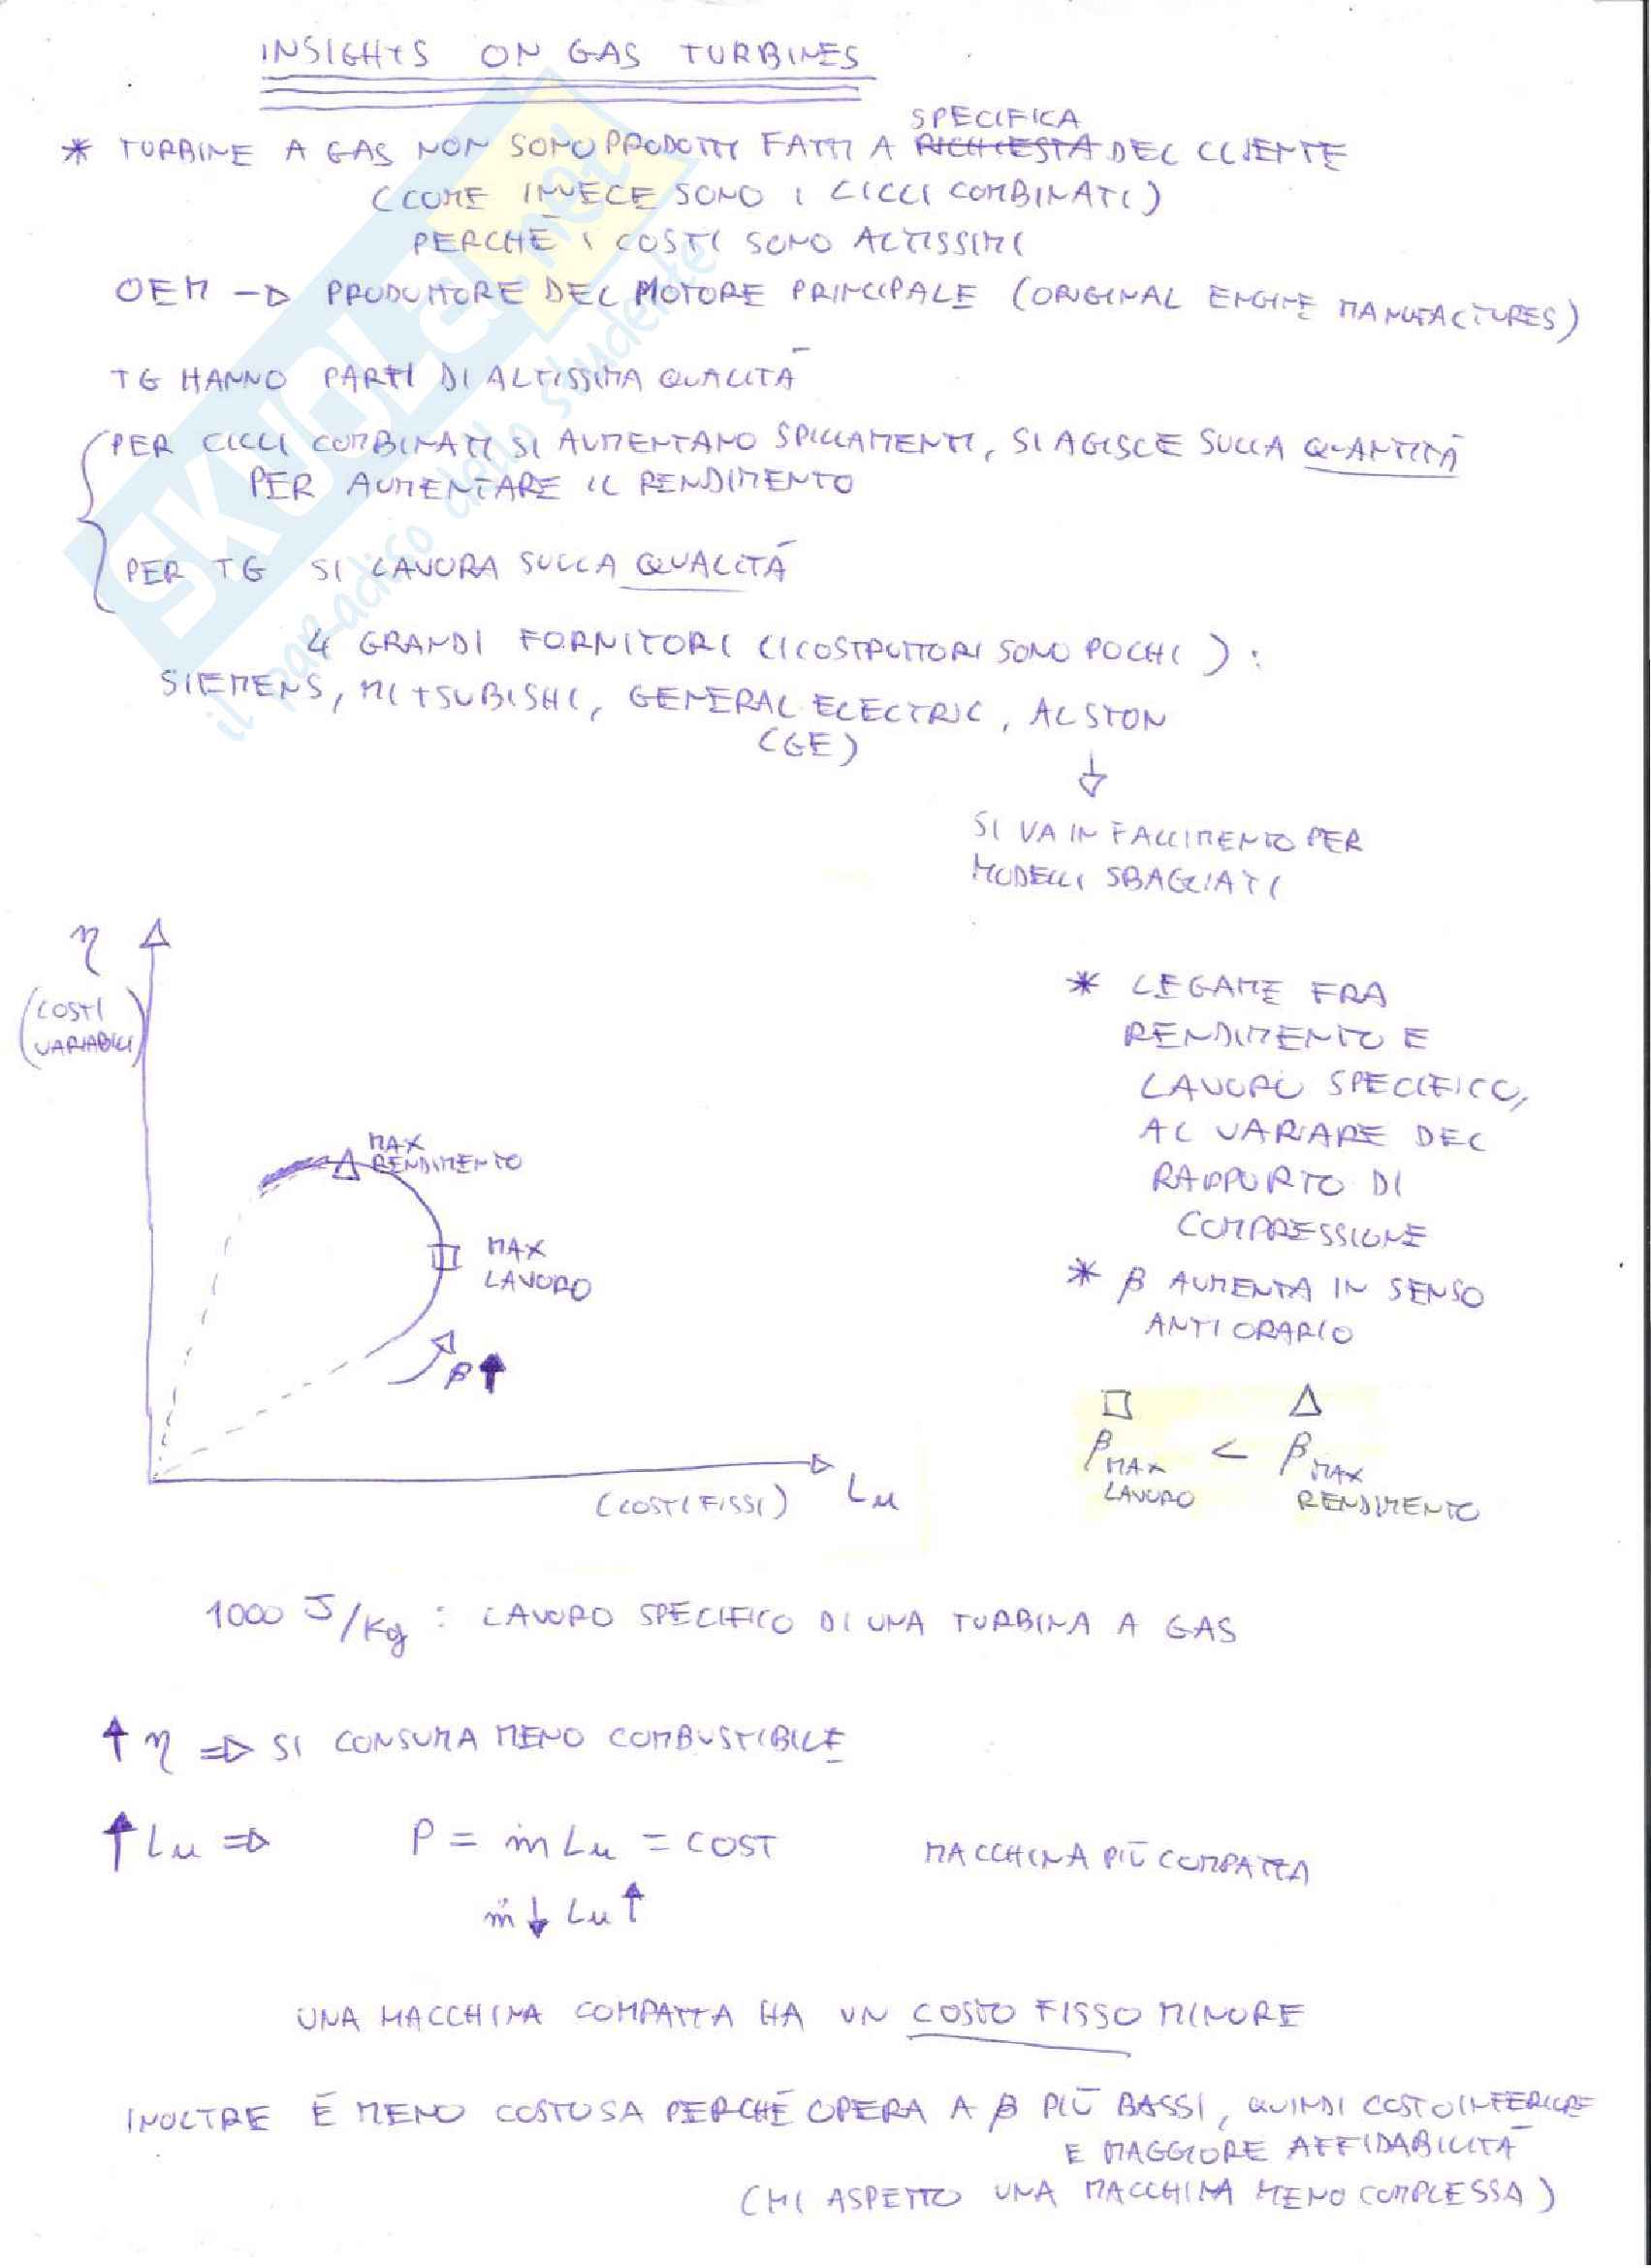 INSIGHTS ON GAS TURBINES
SPECIFICA
* TURBINE A GAS NON SONO PRODOTTI FATTI A RICHIESTA DEL CLIENTE
(COME INVECE SONO I CICLI COMBINATI)
PERCHÉ I COSTI SONO ALTISSIMI
OEM → PRODUTTORE DEL MOTORE PRINCIPALE (ORIGINAL ENGINE MANUFACTURES)
TG HANNO PARTI DI ALTISSIMA QUALITÀ
PER CICLI COMBINATI SI AUMENTANO SPILLAMENTI, SI AGISCE SULLA QUANTITÀ
PER AUMENTARE IL RENDIMENTO
PER TG SI LAVORA SULLA QUALITÀ
4 GRANDI FORNITORI (I COSTRUTTORI SONO POCHI):
SIEMENS, MITSUBISHI, GENERAL ELECTRIC, ALSTON
(GE)
↓
SI VA IN FALLIMENTO PER
MODELLI SBAGLIATI
η
(COSTI
VARIABILI)
MAX
RENDIMENTO
MAX
LAVORO
β↑
(COSTI FISSI) Lu
* LEGAME FRA
RENDIMENTO E
LAVORO SPECIFICO,
AL VARIARE DEL
RAPPORTO DI
COMPRESSIONE
* β AUMENTA IN SENSO
ANTIORARIO
□ △
β MAX LAVORO < β MAX RENDIMENTO
1000 J/Kg : LAVORO SPECIFICO DI UNA TURBINA A GAS
↑ η ⇒ SI CONSUMA MENO COMBUSTIBILE
↑ Lu ⇒ P = ṁ Lu = COST MACCHINA PIÙ COMPATTA
ṁ↓ Lu↑
UNA MACCHINA COMPATTA HA UN COSTO FISSO MINORE
INOLTRE È MENO COSTOSA PERCHÉ OPERA A β PIÙ BASSI, QUINDI COSTO INFERIORE
E MAGGIORE AFFIDABILITÀ
(MI ASPETTO UNA MACCHINA MENO COMPLESSA)
SKUOLA.net
il paradiso dello studente